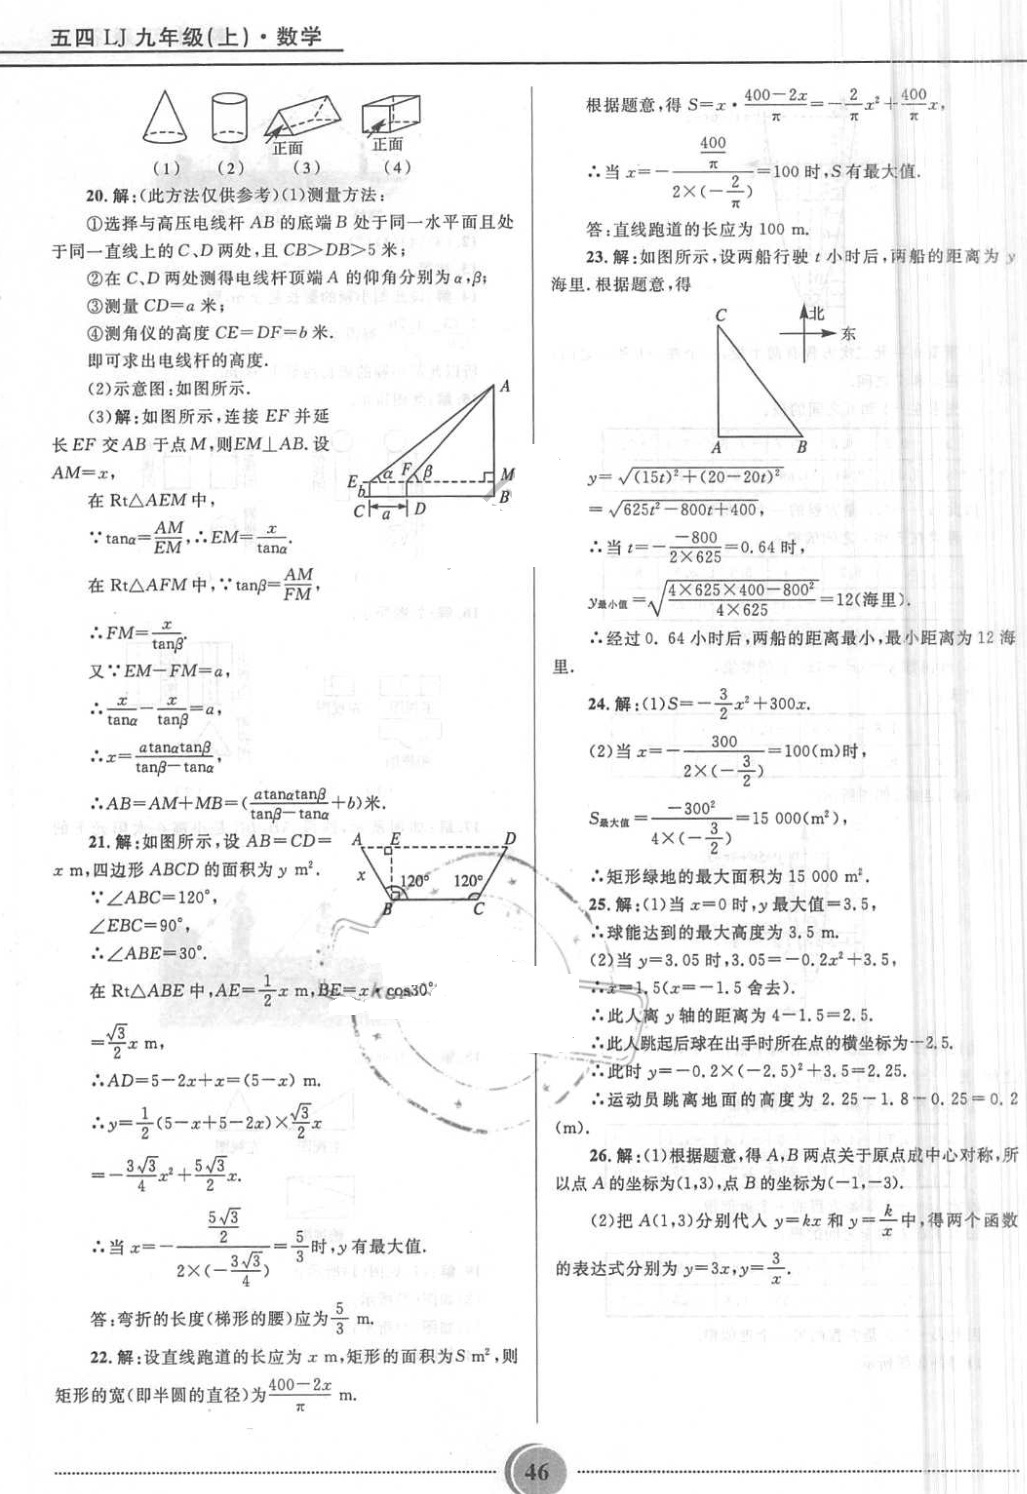 五四 LJ 九年级(上)·数学
正面
正面
(1) (2) (3) (4)
20. 解:(此方法仅供参考)(1)测量方法:
①选择与高压电线杆 AB 的底端 B 处于同一水平面且处
于同一直线上的 C、D 两处,且 CB>DB>5 米;
②在 C、D 两处测得电线杆顶端 A 的仰角分别为 α,β;
③测量 CD=a 米;
④测角仪的高度 CE=DF=b 米.
即可求出电线杆的高度.
(2)示意图:如图所示.
(3)解:如图所示,连接 EF 并延
长 EF 交 AB 于点 M,则EM⊥AB. 设
AM=x,
A
E α F β M
b B
C a D
在 Rt△AEM 中,
∵tanα=AM/EM,∴EM=x/tanα.
在 Rt△AFM 中,∵tanβ=AM/FM,
∴FM=x/tanβ.
又∵EM−FM=a,
∴x/tanα−x/tanβ=a,
∴x=atanαtanβ/tanβ−tanα,
∴AB=AM+MB=(atanαtanβ/tanβ−tanα+b)米.
21. 解:如图所示,设 AB=CD=
x m,四边形 ABCD 的面积为 y m².
A E D
x 120° 120°
B C
∵∠ABC=120°,
∠EBC=90°,
∴∠ABE=30°.
在 Rt△ABE 中,AE=1/2 x m,BE=x×cos30°
=√3/2 x m,
∴AD=5−2x+x=(5−x) m.
∴y=1/2(5−x+5−2x)×√3/2 x
=−3√3/4 x²+5√3/2 x.
∴当 x=−(5√3/2)/(2×(−3√3/4))=5/3时,y 有最大值.
答:弯折的长度(梯形的腰)应为5/3 m.
22. 解:设直线跑道的长应为 x m,矩形的面积为S m²,则
矩形的宽(即半圆的直径)为400−2x/π m.
根据题意,得 S=x·400−2x/π=−2/π x²+400/π x,
∴当 x=−(400/π)/(2×(−2/π))=100 时,S有最大值.
答:直线跑道的长应为 100 m.
23. 解:如图所示,设两船行驶 t 小时后,两船的距离为 y
海里. 根据题意,得
C 北
东
A B
y=√(15t)²+(20−20t)²
=√625t²−800t+400,
∴当 t=−−800/2×625=0.64 时,
y最小值=√4×625×400−800²/4×625=12(海里).
∴经过 0.64 小时后,两船的距离最小,最小距离为 12 海
里.
24. 解:(1)S=−3/2 x²+300x.
(2)当 x=−300/(2×(−3/2))=100(m)时,
S最大值=−300²/(4×(−3/2))=15 000(m²),
∴矩形绿地的最大面积为 15 000 m².
25. 解:(1)当 x=0 时,y 最大值=3.5,
∴球能达到的最大高度为 3.5 m.
(2)当 y=3.05 时,3.05=−0.2x²+3.5,
∴x=1.5(x=−1.5 舍去).
∴此人离 y 轴的距离为 4−1.5=2.5.
∴此人跳起后球在出手时所在点的横坐标为−2.5.
∴此时 y=−0.2×(−2.5)²+3.5=2.25.
∴运动员跳离地面的高度为 2.25−1.8−0.25=0.2
(m).
26. 解:(1)根据题意,得 A,B 两点关于原点成中心对称,所
以点 A 的坐标为(1,3),点 B 的坐标为(−1,−3).
(2)把 A(1,3)分别代人 y=kx 和 y=k/x中,得两个函数
的表达式分别为 y=3x,y=3/x.
46